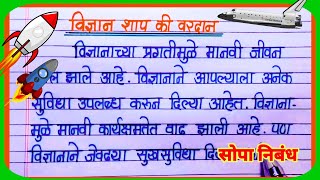 विज्ञान शाप की वरदान
विज्ञानाच्या प्रगतीमुळे मानवी जीवन
झाले आहे. विज्ञानाने आपल्याला अनेक
सुविधा उपलब्ध करुन दिल्या आहेत. विज्ञाना-
मुळे मानवी कार्यक्षमतेत वाढ झाली आहे. पण
विज्ञानाने जेवढ्या सुखसुविधा दि
सोपा निबंध